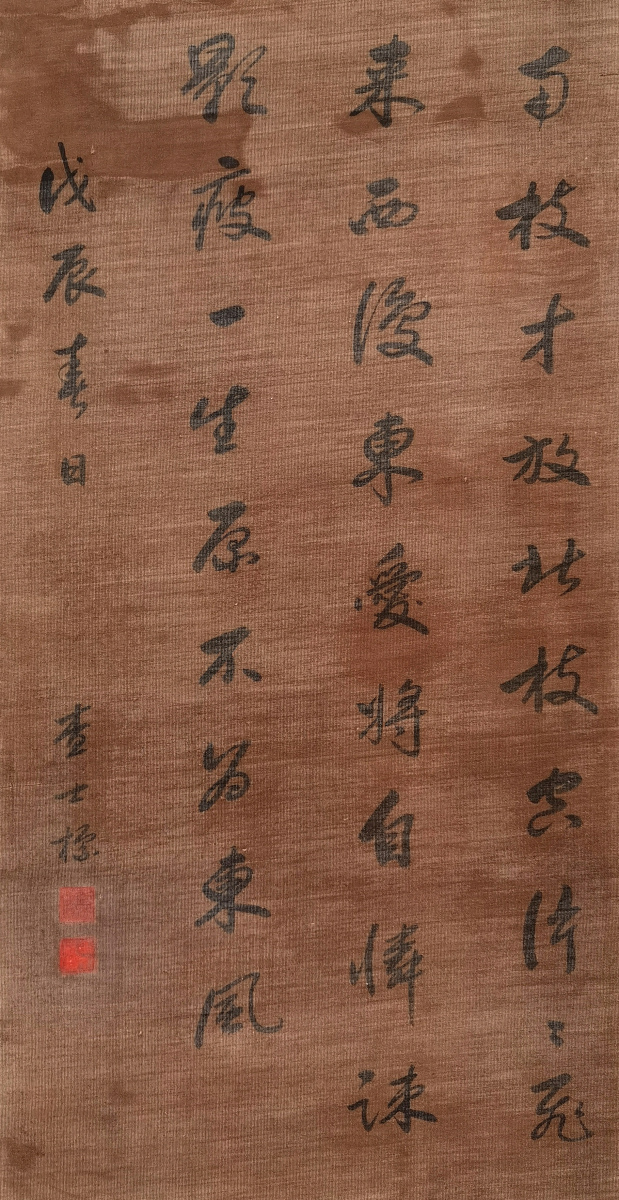 南枝才放北枝空片〻飛
來西復東愛將自憐疎
影瘦一生原不為東風
戊辰春日
查士標